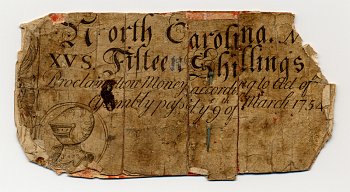 North Carolina. N
XVS. Fifteen Shillings
Proclamation Money according to Act of
Assembly pass'd ye 9th of March 1754